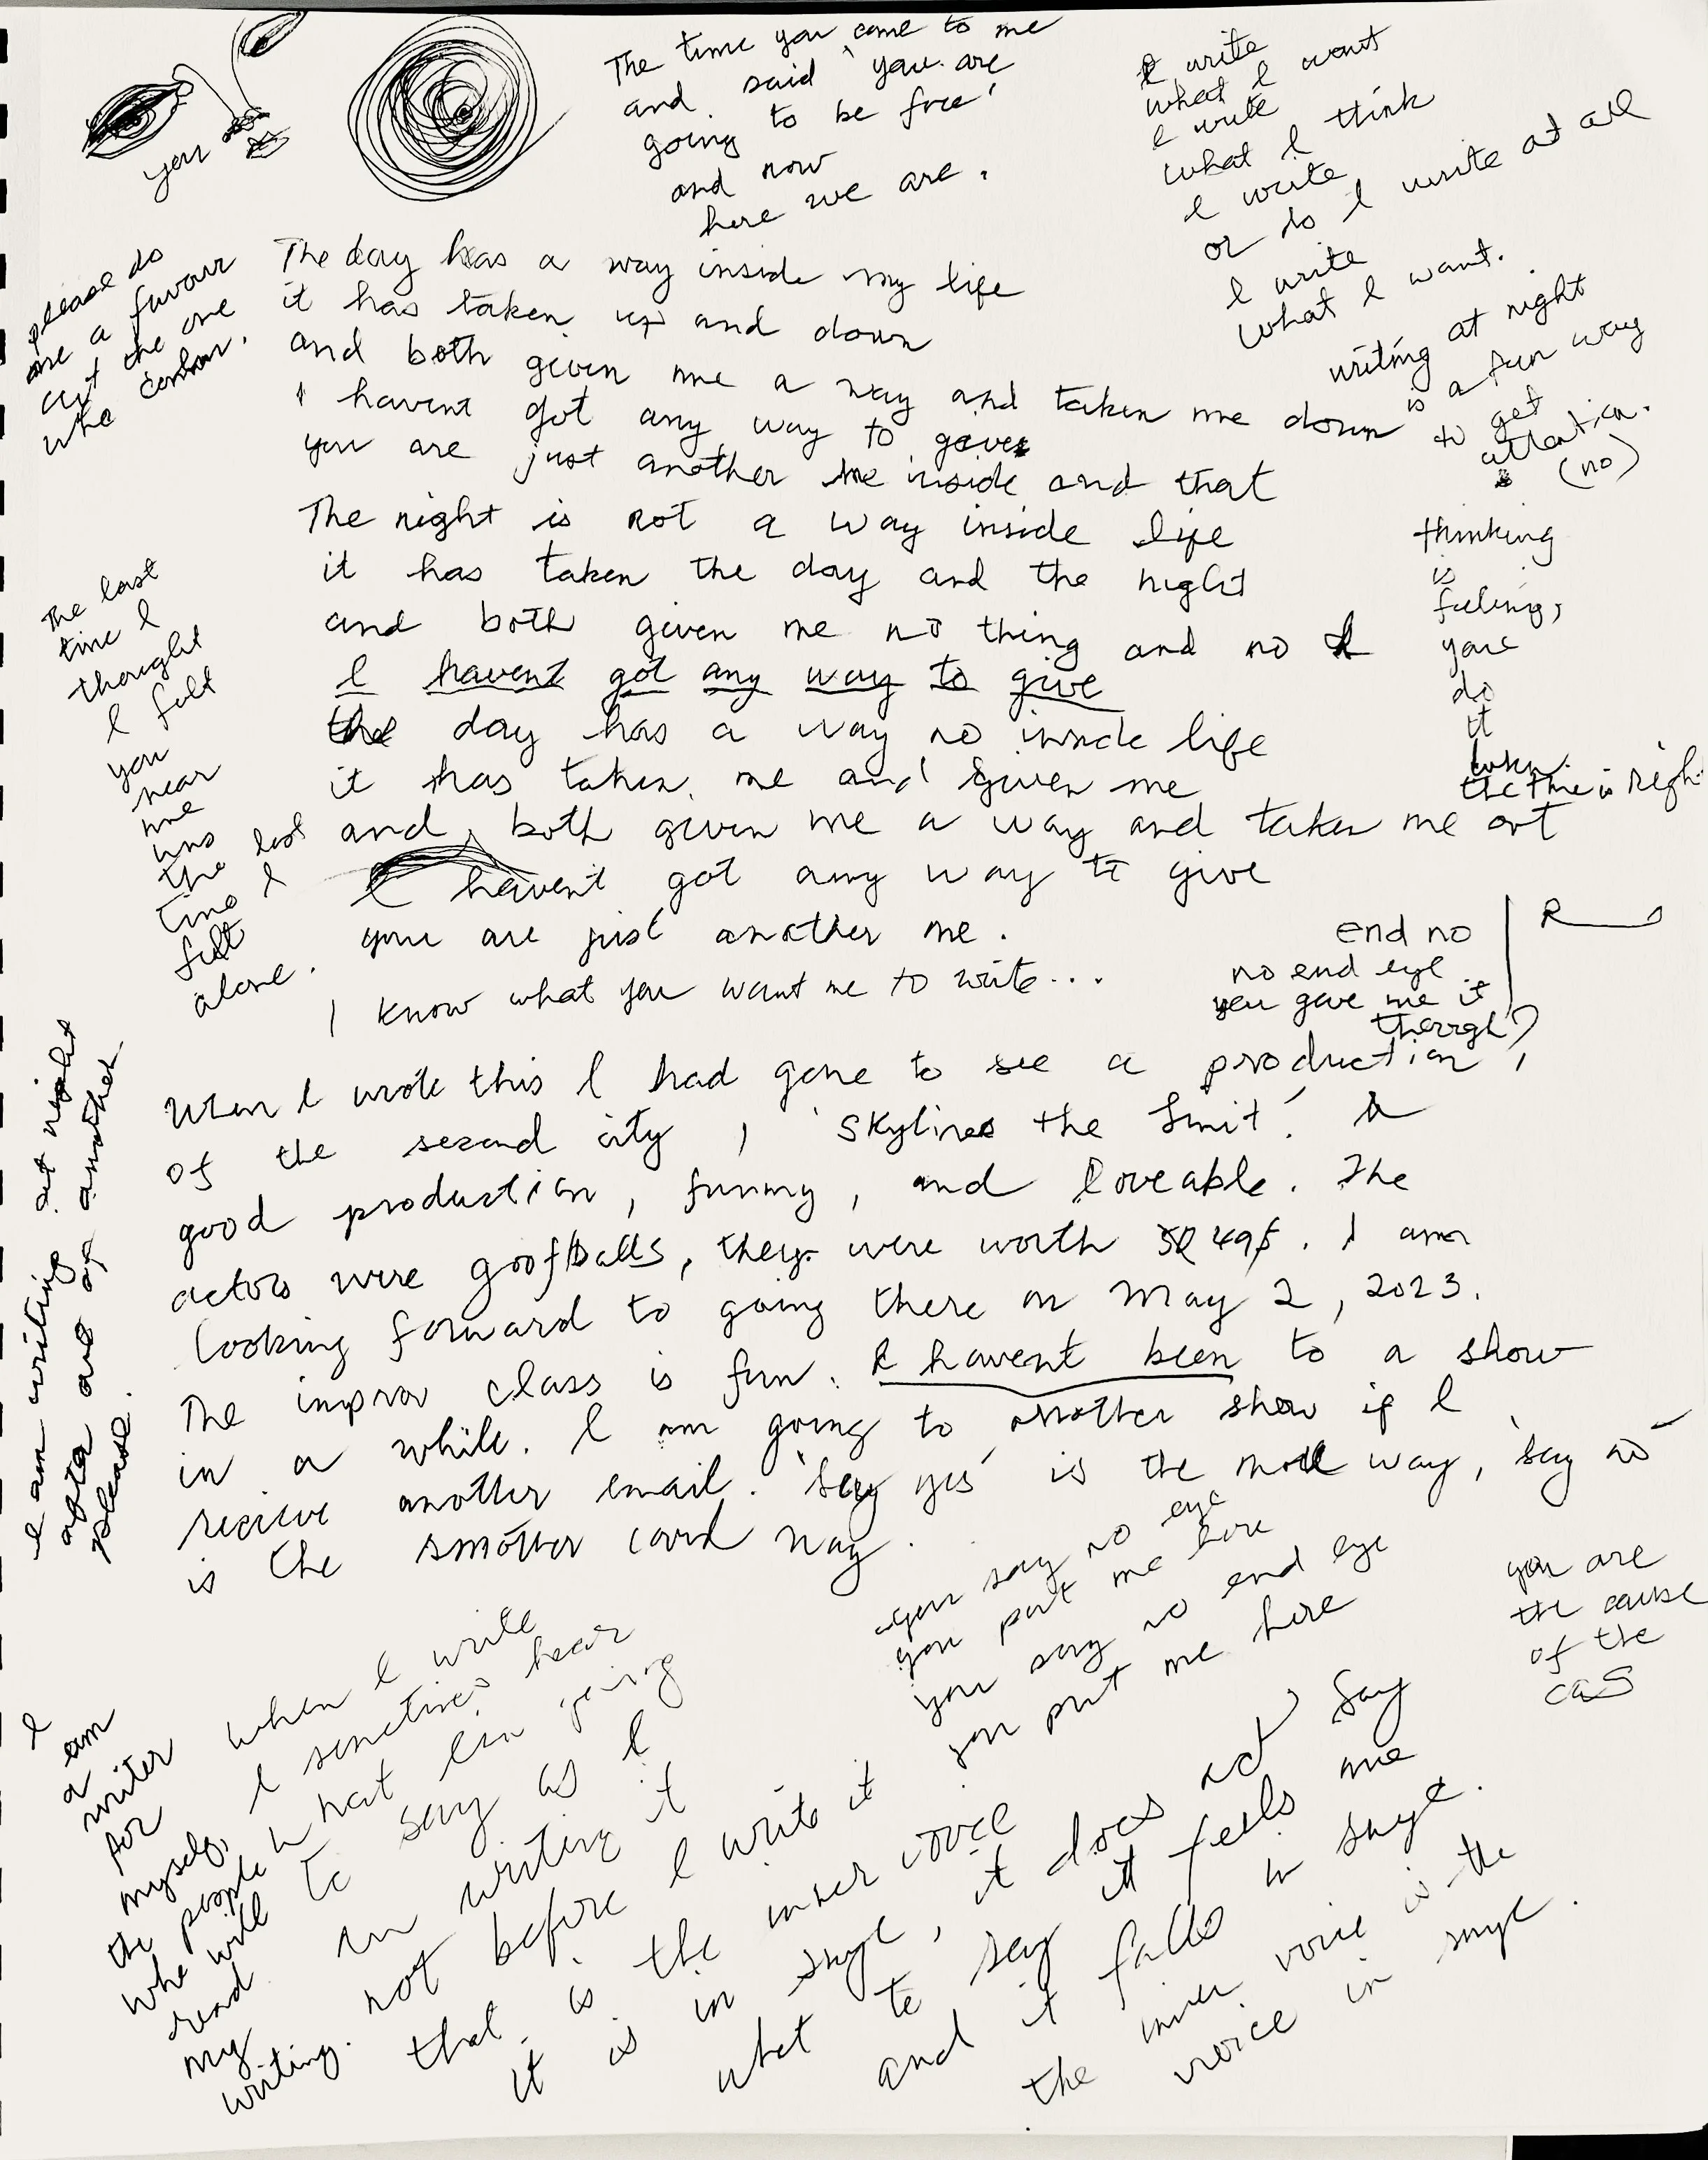 you
The time you came to me
and said 'you are
going to be free'
and now
here we are.
I write
what I want
I write
what I think
I write
or do I write at all
I write
what I want.
writing at night
is a fun way
to get
attention.
(no)
please do
me a favour
cut the one
who
The day has a way inside my life
it has taken up and down
and both given me a way and taken me down
I havent got any way to give
you are just another me inside and that
The night is not a way inside life
it has taken the day and the night
and both given me no thing and no
I havent got any way to give
the day has a way no inside life
it has taken me and given me
and both given me a way and taken me out
I havent got any way to give
you are just another me.
I know what you want me to write...
thinking
is
feeling,
you
do
it
when
the time is righ
The last
time I
thought
I felt
you
near
me
was
the last
time I
felt
alone.
end no
no end eye
you gave me it
though?
R
When I wrote this I had gone to see a production,
of the second city, 'Skylines the limit'. A
good production, funny, and loveable. The
actors were goofballs, they were worth 49$. I am
looking forward to going there on May 2, 2023.
The improv class is fun. I havent been to a show
in a while. I am going to another show if I
recieve another email. 'Say yes' is the way, 'say no'
is the smother card way.
I am writing at night
after one of another
please.
you say no eye
you put me here
you say no end eye
you put me here
you are
the cause
of the
cas
I
am
a
writer
for
myself,
the people
who will
read
my
writing.
when I write
I sometimes hear
what Im going
to say as I
am writing it
not before I write it
that is the inner voice
it is in suye, it does not say
what to say it feels me
and it falls in suye.
the inner voice is the
voice in suye.